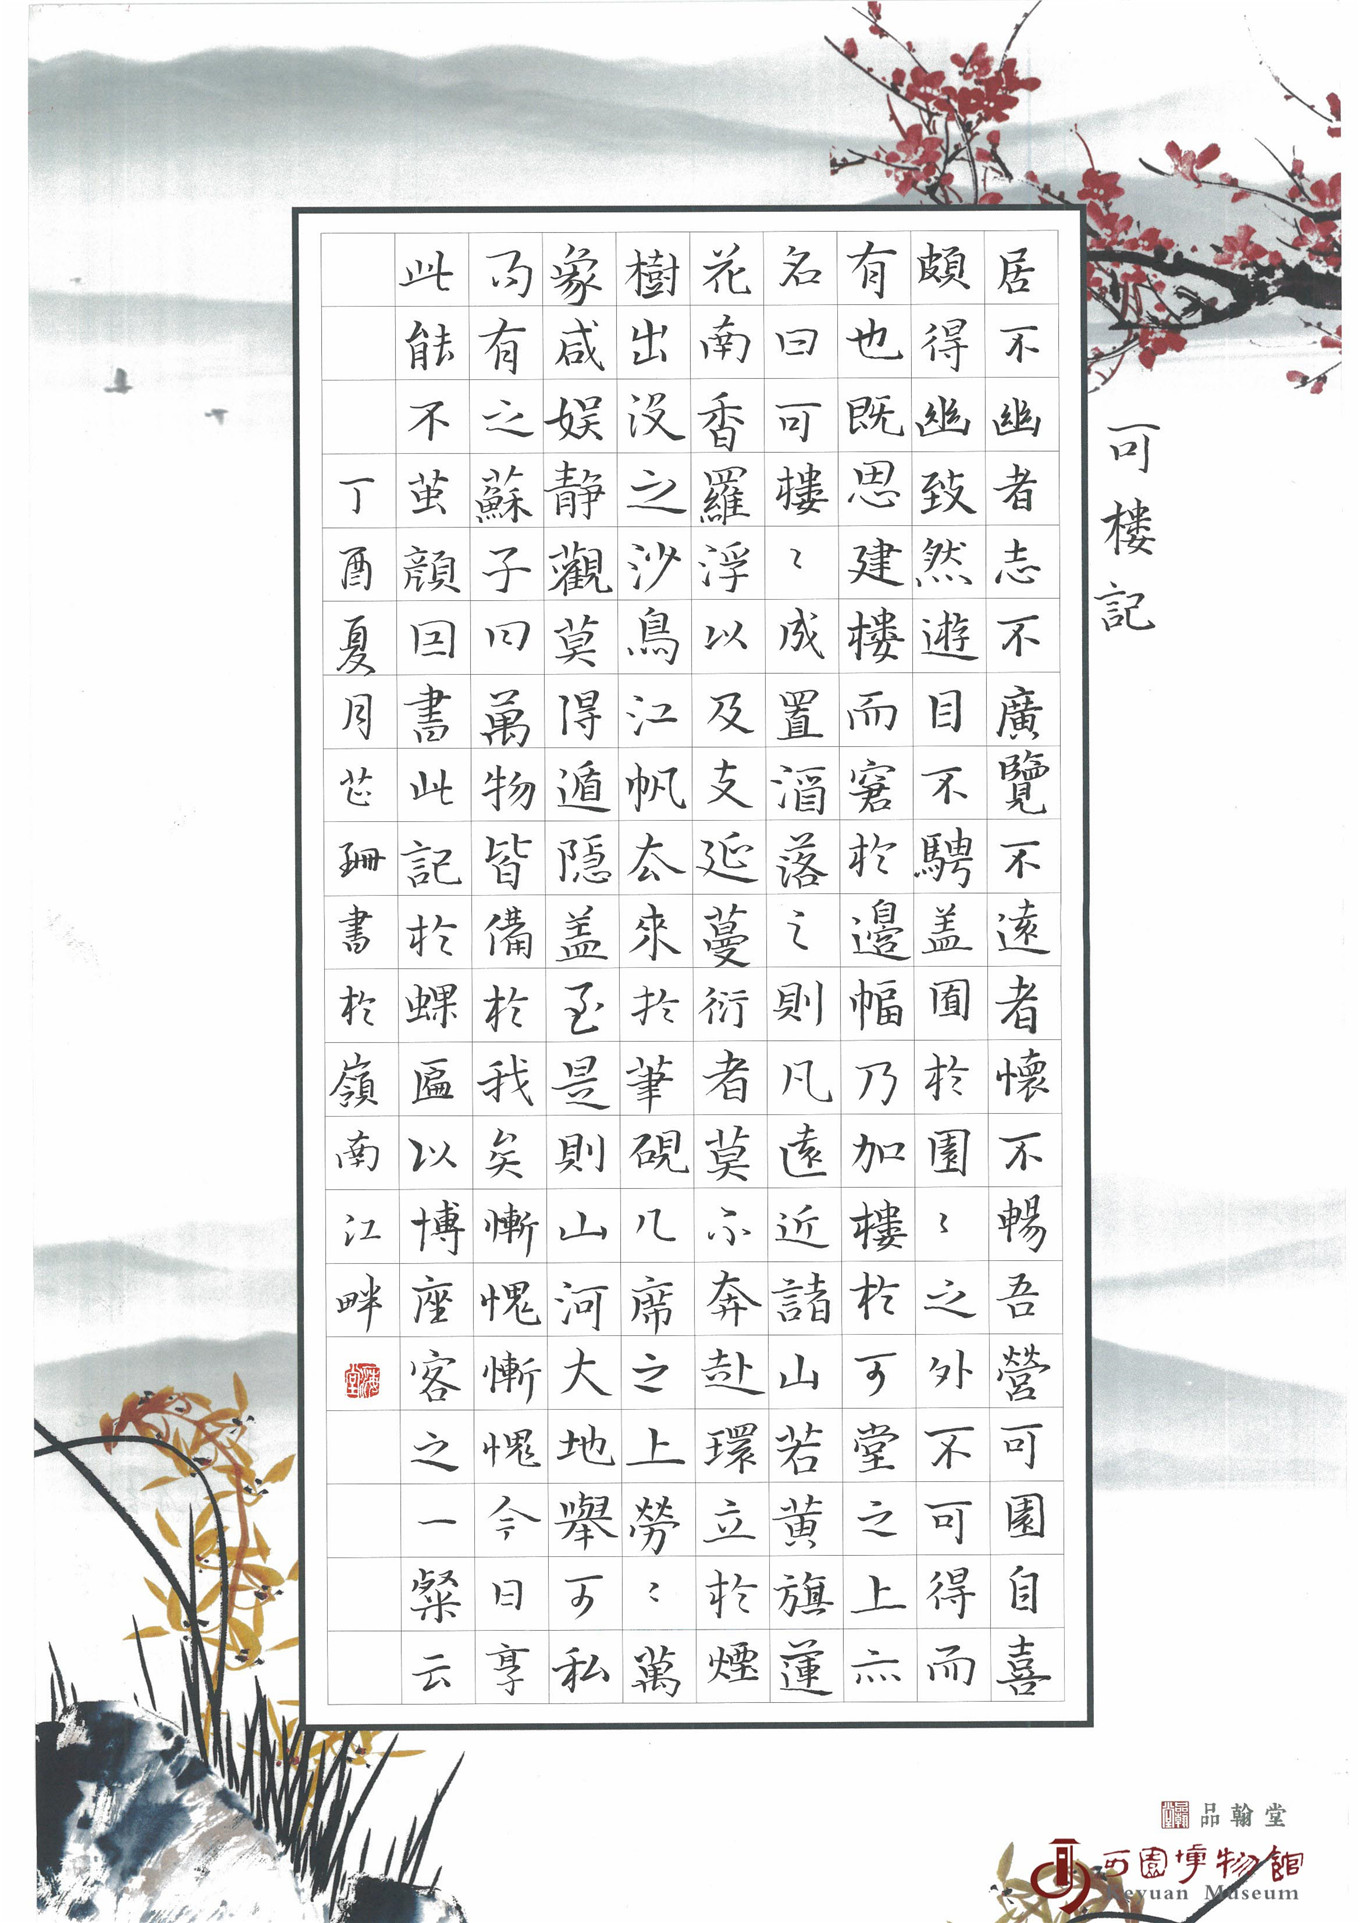 可樓記
居不幽者志不廣覽不遠者懷不暢吾營可園自喜
頗得幽致然遊目不騁盖囿於園〻之外不可得而
有也既思建樓而窘於邊幅乃加樓於可堂之上亦
名曰可樓〻成置酒落之則凡遠近諸山若黄旗蓮
花南香羅浮以及支延蔓衍者莫不奔赴環立於煙
樹出没之沙鳥江帆去來於筆硯几席之上勞〻萬
象咸娱静觀莫得遁隐盖至是則山河大地舉可私
而有之蘇子曰萬物皆備於我矣慚愧慚愧今日享
此能不茧顔回書此記於螺匾以博座客之一粲云
丁酉夏月芷珊書於嶺南江畔
品翰堂
可園博物館
Keyuan Museum